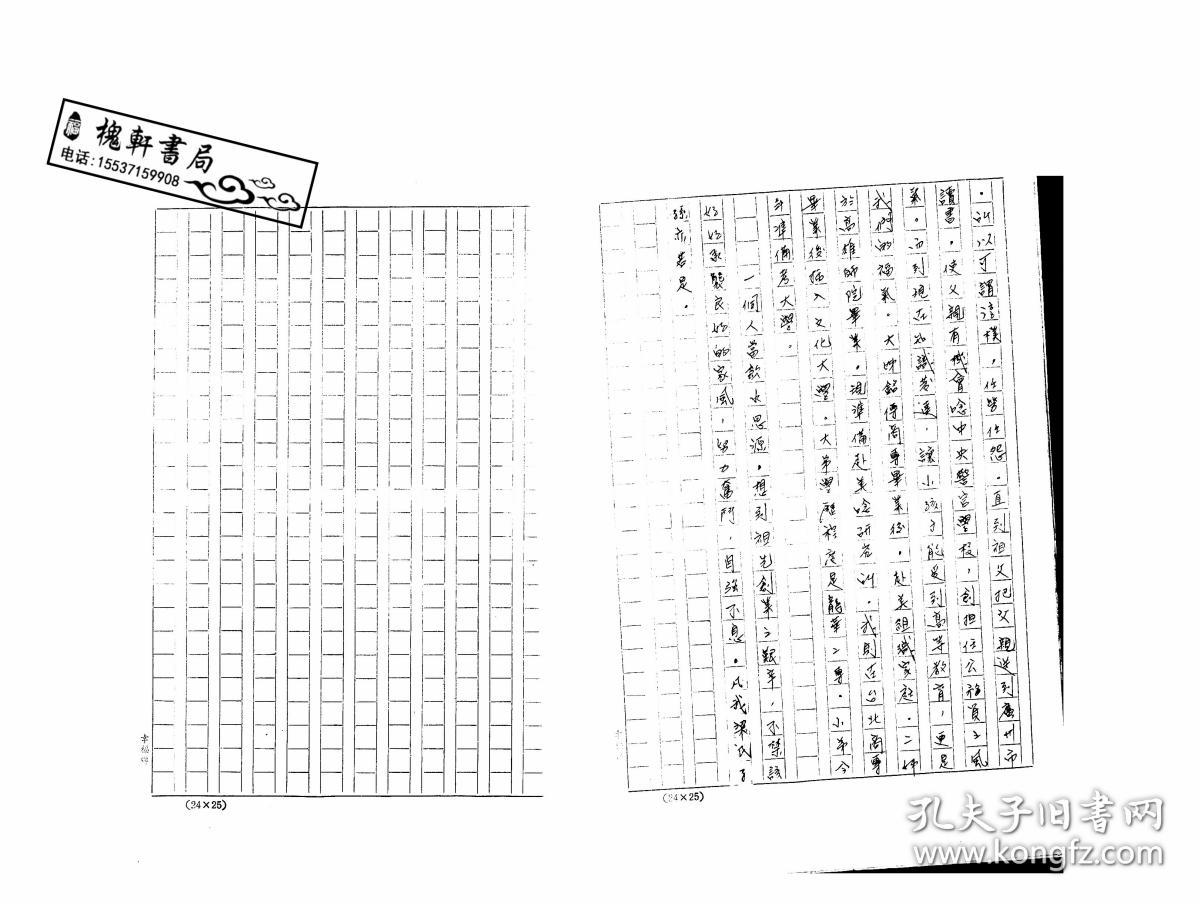 槐軒書局
电话:15537159908
。所以可謂淳樸,任勞任怨。直到祖父把父親送到廣州市
讀書,使父親有機會唸中央警官學校,創担任公務員之風
氣。而到現在知識普遍,讓小孩子能受到高等教育,更是
我們的福氣。大姊銘傳商專畢業後,赴美組織家庭。二姊
於高雄師院畢業,現準備赴美唸研究所。我則在台北商專
畢業後插入文化大學。大弟學歷程度是龍華二專。小弟今
年準備考大學。
一個人當飲水思源。想到祖先創業之艱辛,不禁該
好好承襲良好的家風,努力奮鬥,自強不息。凡我梁氏子
孫亦若是。
(24×25)
幸福牌
(24×25)
孔夫子旧书网
www.kongfz.com